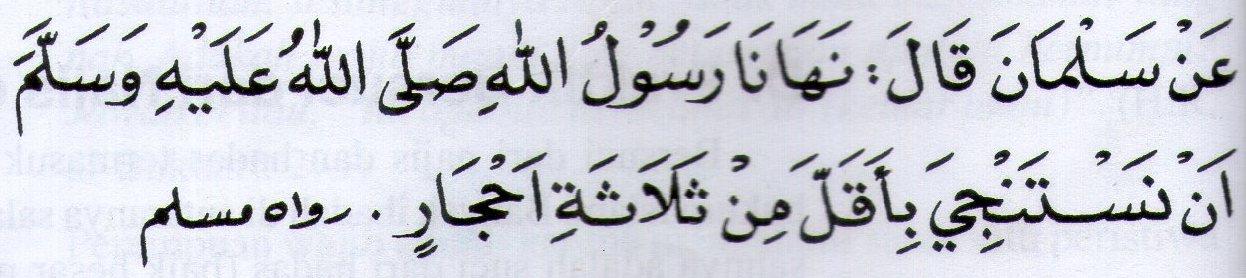 عَنْ سَلْمَانَ قَالَ: نَهَانَا رَسُوْلُ اللّٰهِ صَلَّى اللّٰهُ عَلَيْهِ وَسَلَّمَ
اَنْ نَسْتَنْجِيَ بِأَقَلَّ مِنْ ثَلَاثَةِ اَحْجَارٍ. رواه مسلم